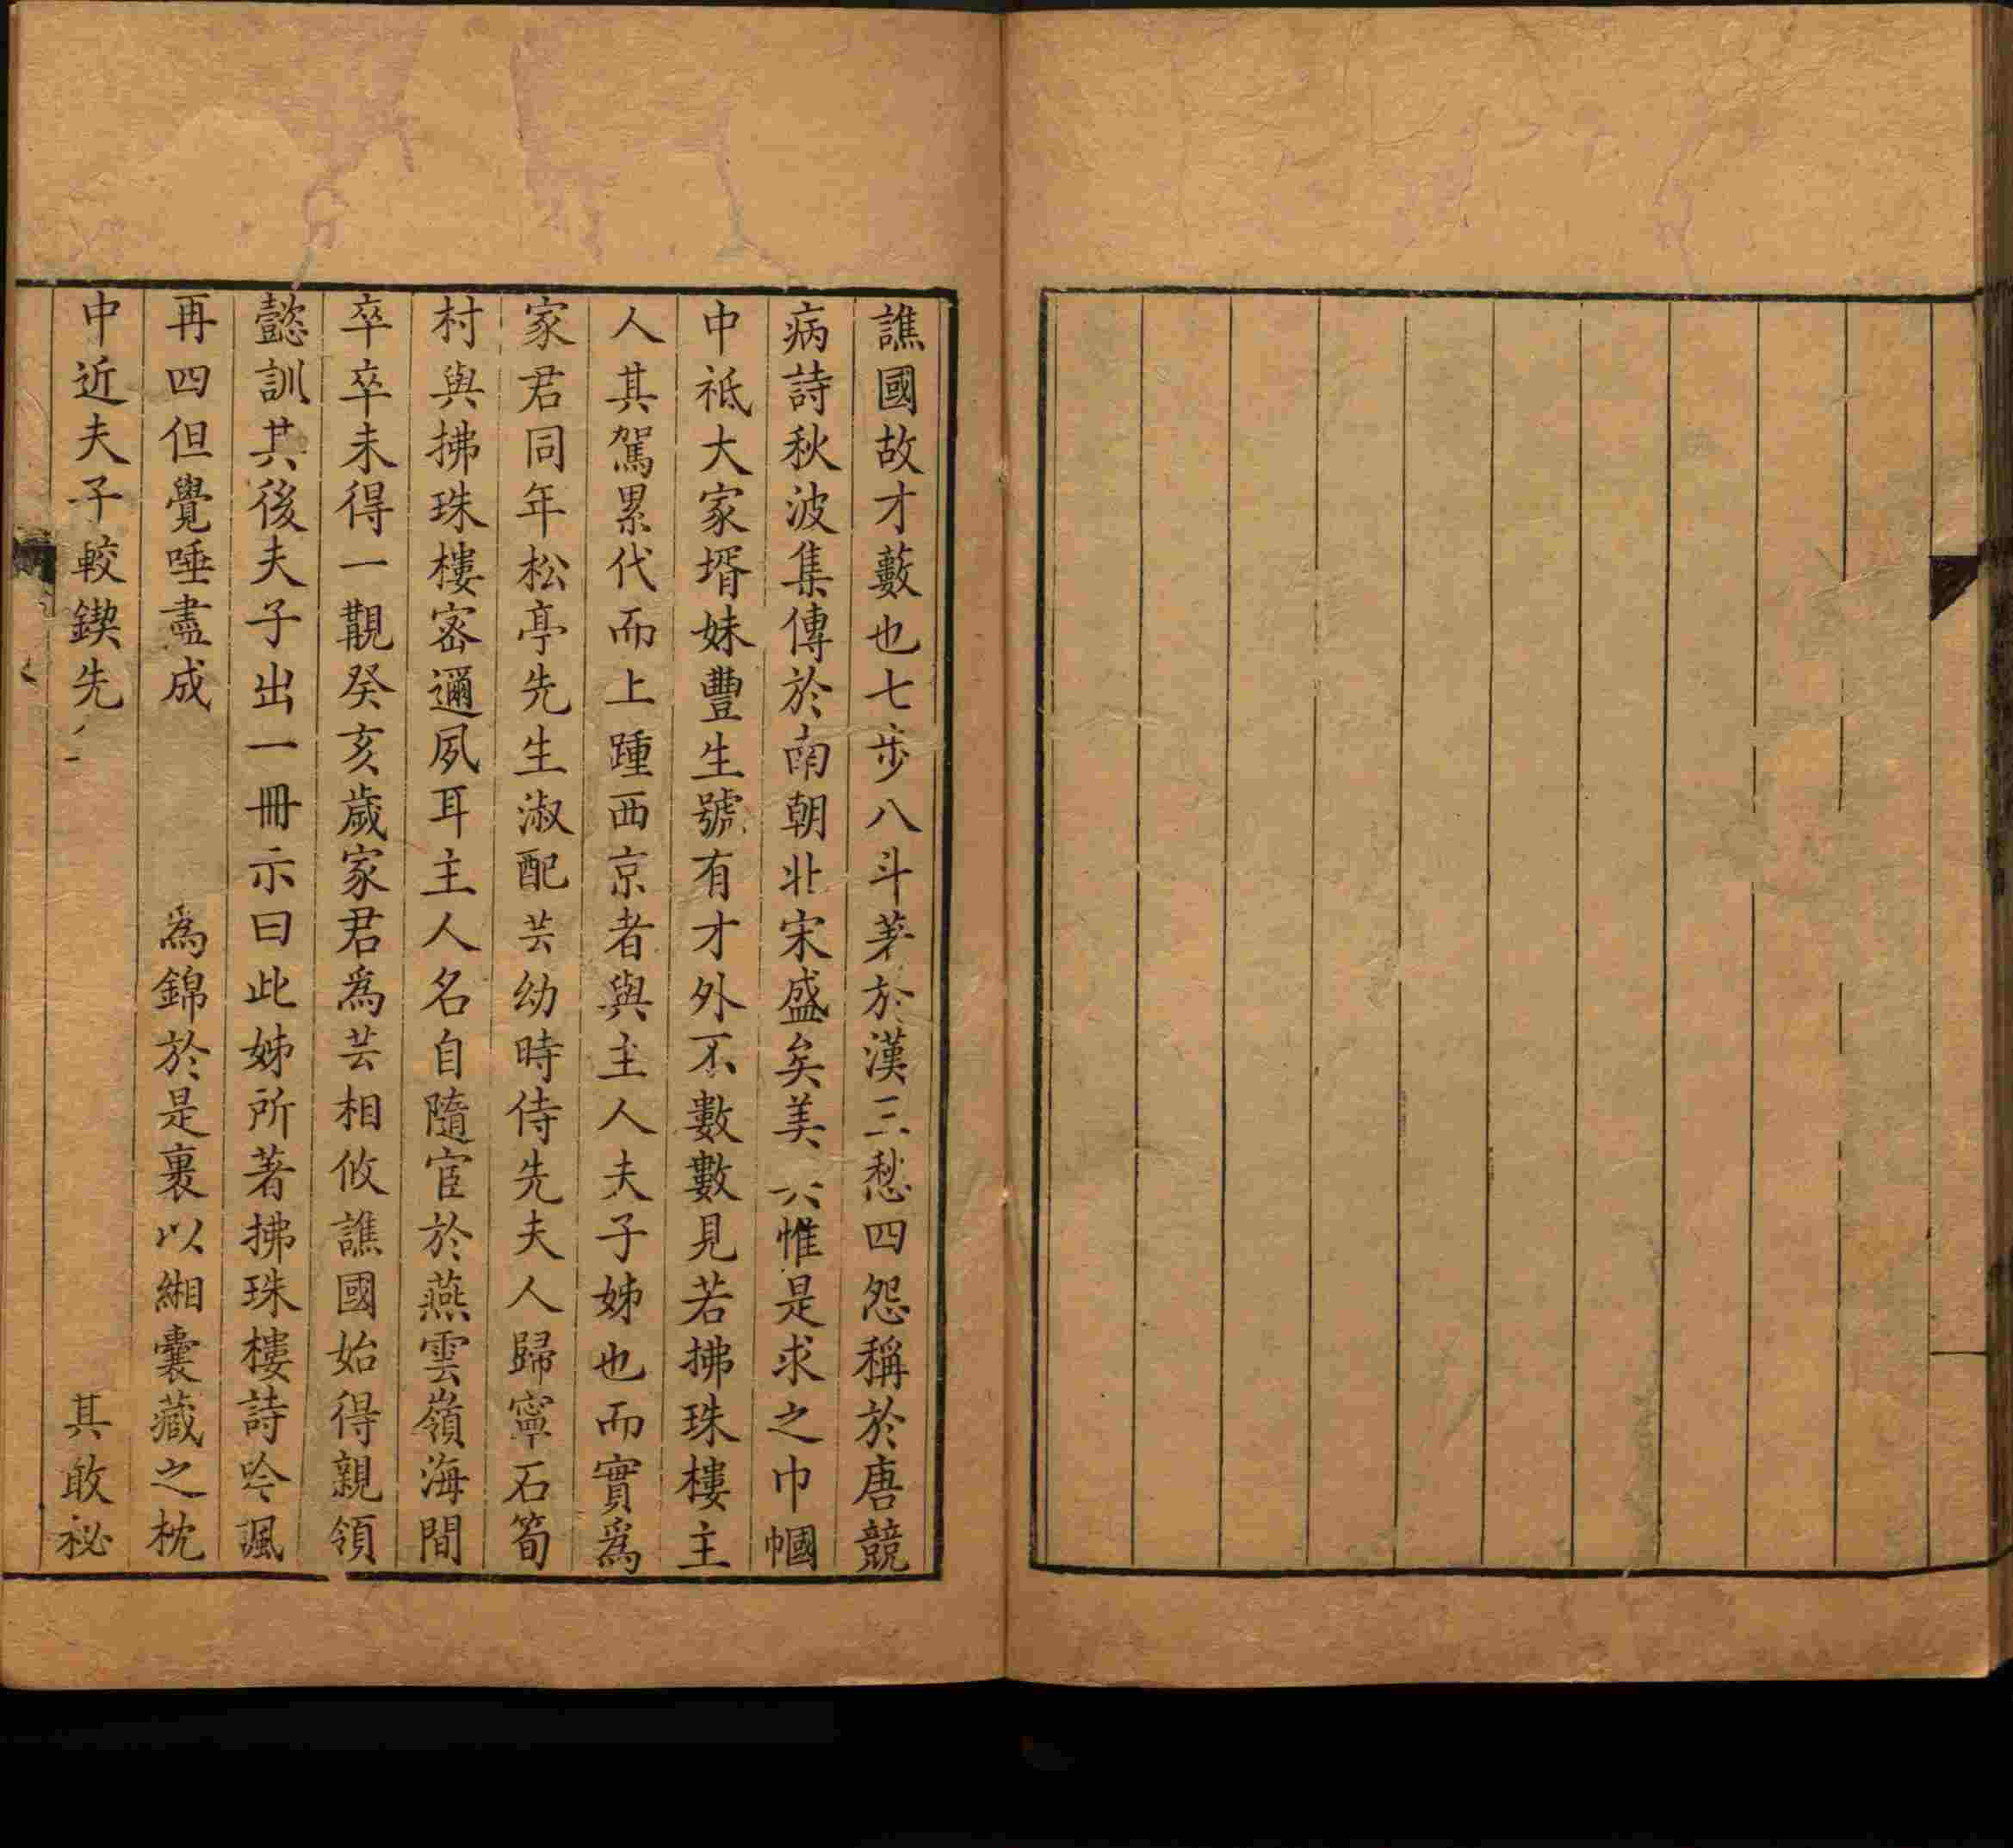 譙國故才藪也七步八斗茅於漢三愁四怨稱於唐競
病詩秋波集傳於南朝北宋盛矣美惟是求之巾幗
中祗大家壻妹豐生號有才外不數數見若拂珠樓主
人其駕累代而上踵西京者與主人夫子姊也而實爲
家君同年松亭先生淑配芸幼時侍先夫人歸寧石筍
村與拂珠樓密邇夙耳主人名自隨宦於燕雲嶺海間
卒卒未得一觀癸亥歲家君爲芸相攸譙國始得親領
懿訓其後夫子出一冊示曰此姊所著拂珠樓詩吟諷
再四但覺唾盡成 爲錦於是裹以緗囊藏之枕
中近夫子較鍥先 其敢祕